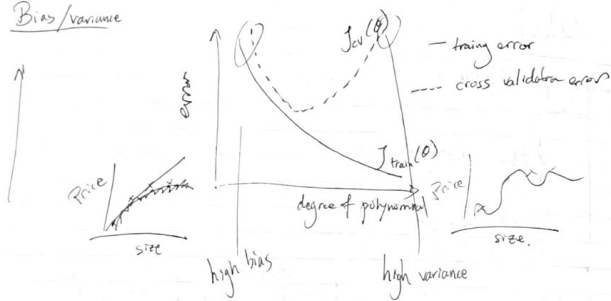 Bias/variance
error
Jcv(θ)
— traing error
--- cross validaton error
Jtrain(θ)
degree of polynomial
Price
size
Price
size.
high bias
high variance